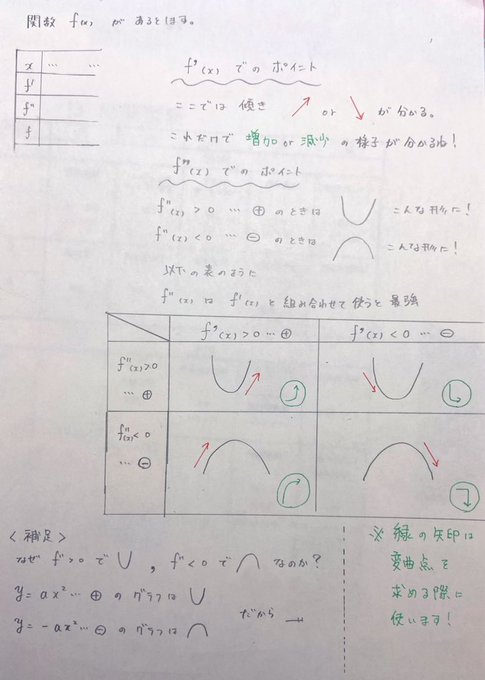 関数 f(x) があるとします。
x … …
f'
f"
f
f'(x) でのポイント
ここでは 傾き ↗ or ↘ が分かる。
これだけで 増加 or 減少 の様子が分かるね!
f"(x) でのポイント
f"(x) > 0 … ⊕ のときは こんな形に!
f"(x) < 0 … ⊖ のときは こんな形に!
以下の表のように
f"(x) は f'(x) と組み合わせて使うと最強
f'(x) > 0 … ⊕ f'(x) < 0 … ⊖
f"(x) > 0
… ⊕
f"(x) < 0
… ⊖
<補足>
なぜ f" > 0 で ∪ , f" < 0 で ∩ なのか?
y = ax² … ⊕ のグラフは ∪
だから →
y = -ax² … ⊖ のグラフは ∩
※ 緑の矢印は
変曲点を
求める際に
使います!